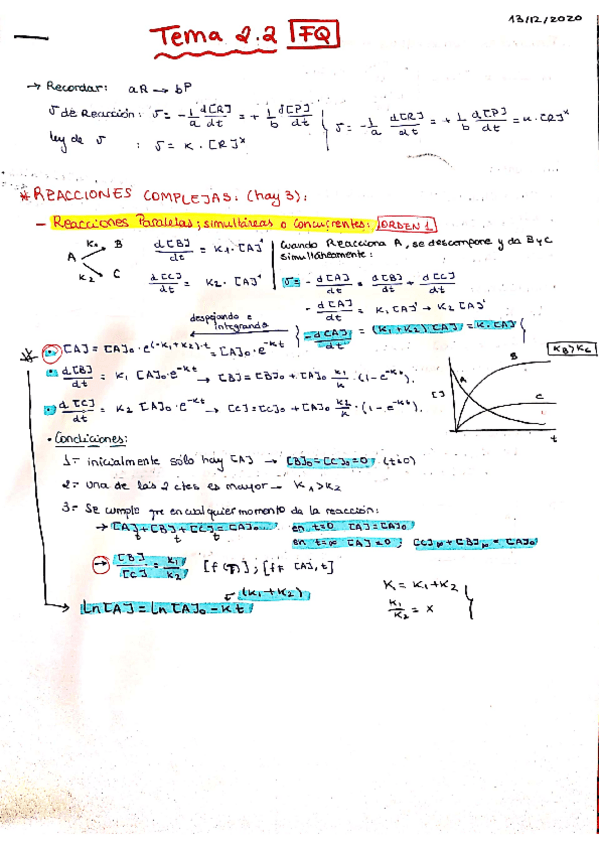 13/12/2020
Tema 2.2 FQ
→ Recordar: aR → bP
v de Reacción: v = -1/a d[R]/dt = + 1/b d[P]/dt } v = -1/a d[R]/dt = + 1/b d[P]/dt = k·[R]^x
ley de v : v = K·[R]^x
* REACCIONES COMPLEJAS: (hay 3):
- Reacciones Paralelas; simultáneas o concurrentes: ORDEN 1
A K1 B K2 C
d[B]/dt = K1·[A]^1
d[C]/dt = K2·[A]^1
Cuando Reacciona A, se descompone y da B y C
simultáneamente:
v = - d[A]/dt = d[B]/dt + d[C]/dt
- d[A]/dt = K1[A]^1 + K2[A]^1
- d[A]/dt = (K1+K2)[A] = K·[A]
despejando e
Integrando
* · [A] = [A]0·e^(-K1+K2)·t = [A]0·e^-Kt
· d[B]/dt = K1 [A]0·e^-Kt → [B] = [B]0 + [A]0 K1/K·(1-e^-Kt).
· d[C]/dt = K2 [A]0·e^-Kt → [C] = [C]0 + [A]0 K2/K·(1-e^-Kt).
KB>KC
[ ] A B C t
· Condiciones:
1- inicialmente sólo hay [A] → [B]0 = [C]0 = 0 (t=0)
2- una de las 2 ctes es mayor - K1>K2
3- Se cumple que en cualquier momento da la reacción:
→ [A]t + [B]t + [C]t = [A]0... en t=0 [A]=[A]0
en t=∞ [A]=0 ; [C]∞ + [B]∞ = [A]0
→ [B]/[C] = K1/K2 [f(T)] ; [≠f [A], t]
(K1+K2)
→ Ln[A] = Ln[A]0 - Kt
K = K1+K2
K1/K2 = x }